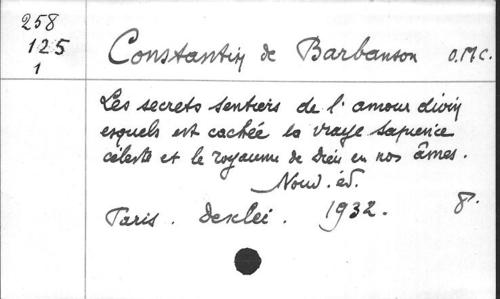 258
125
1
Constantin de Barbanson O.M.C.
Les secrets sentiers de l'amour divin
esquels est cachée la vraye sapience
céleste et le royaume de Dieu en nos âmes.
Nouv. éd.
Paris. Desclée. 1932. 8°.